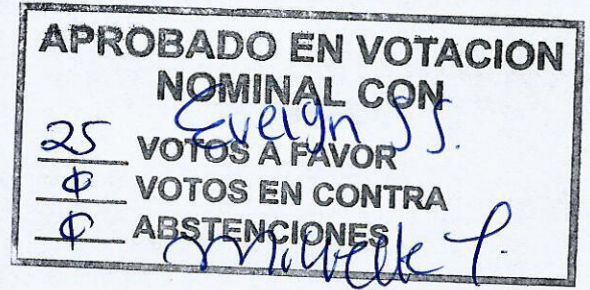 APROBADO EN VOTACION
NOMINAL CON
Evelyn SS.
25 VOTOS A FAVOR
φ VOTOS EN CONTRA
φ ABSTENCIONES